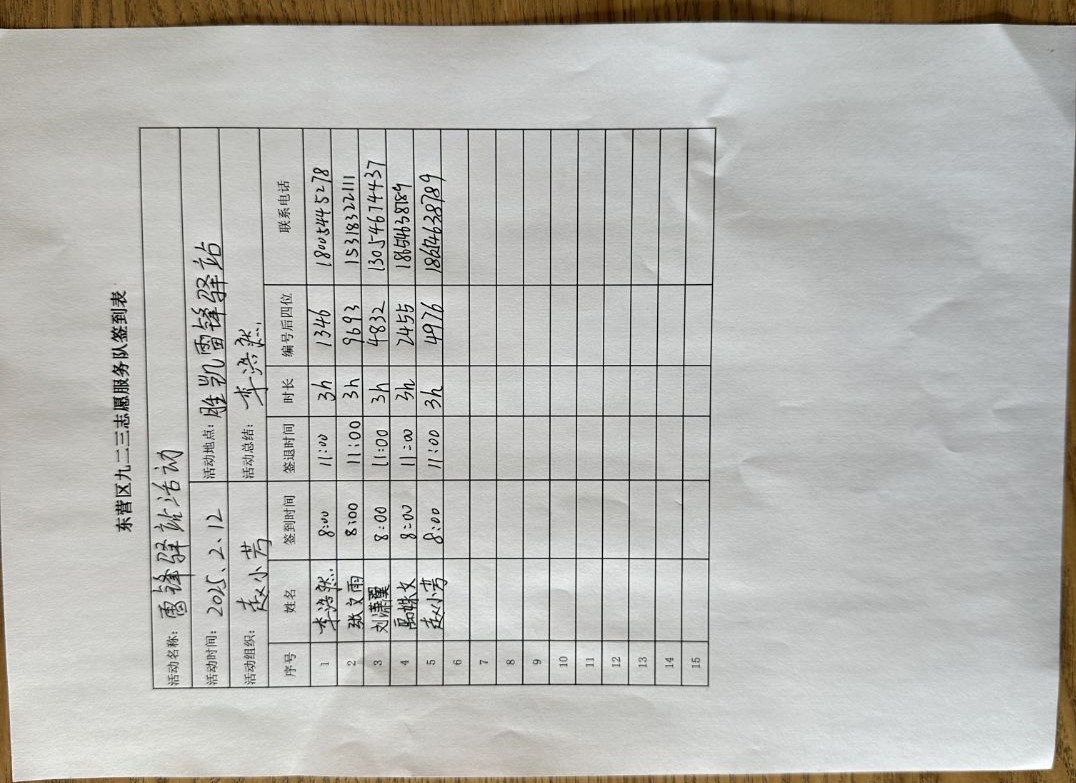 东营区九二三志愿服务队签到表
活动名称: 雷锋驿站活动
活动时间: 2025、2、12 活动地点: 胜凯雷锋驿站
活动组织: 赵小芳 活动总结: 李浩然
序号 姓名 签到时间 签退时间 时长 编号后四位 联系电话
1 李浩然 8:00 11:00 3h 1346 18005445278
2 张文雨 8:00 11:00 3h 9693 15318322111
3 刘潇翼 8:00 11:00 3h 4832 13054674437
4 8:00 11:00 3h 2455 18654638789
5 赵小芳 8:00 11:00 3h 4976
6
7
8
9
10
11
12
13
14
15